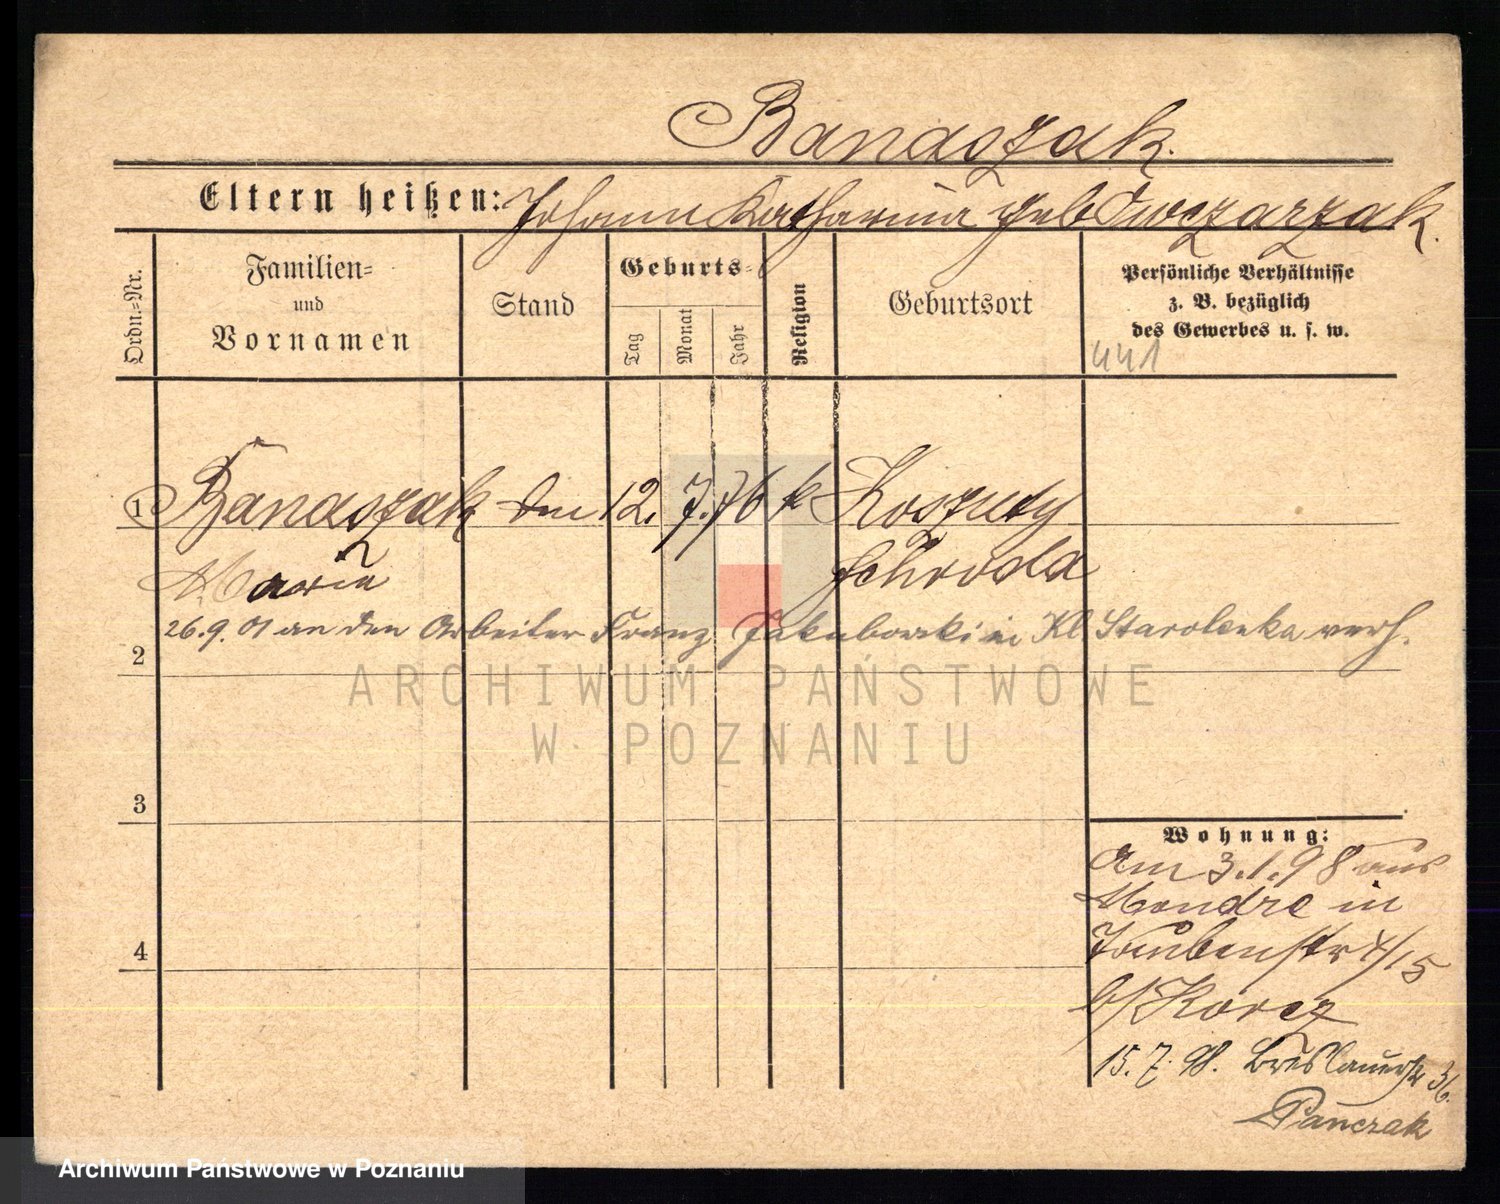 Banaszak.
Eltern heißen: Johann Katharina geb Owczarzak.
Ordn.=Nr.
Familien=
und
Vornamen
Stand
Geburts=
Tag
Monat
Jahr
Religion
Geburtsort
Persönliche Verhältnisse
z. B. bezüglich
des Gewerbes u. s. w.
441
1 Banaszak 12. 7. 76 k Koszuty
Maria Schroda
26.9.01 an den Arbeiter Franz Jakubowski in Kl Starolenka verh.
2
ARCHIWUM PAŃSTWOWE
W POZNANIU
3
Wohnung:
Am 3.1.98 aus
Mondre in
4
Taubenstr 4/15
b/Korcz
15.7.98. Breslauerstr 36.
Panczak
Archiwum Państwowe w Poznaniu